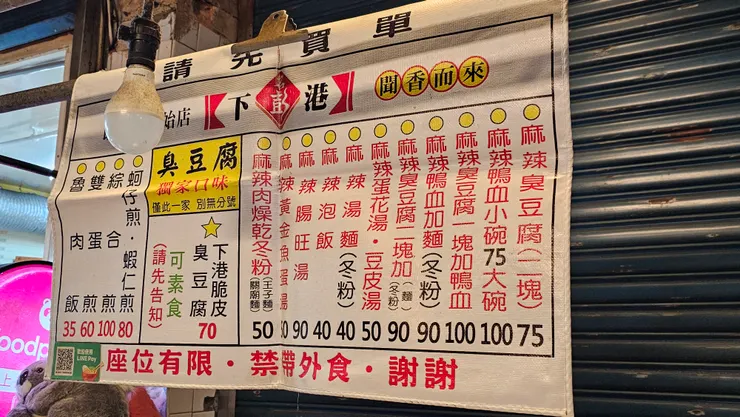 請先買單
始店
下港
聞香而來
麻辣臭豆腐(二塊) 75
麻辣鴨血小碗75大碗 100
麻辣臭豆腐一塊加鴨血 100
麻辣鴨血加麵(冬粉) 90
麻辣臭豆腐二塊加(麵)(冬粉) 90
麻辣蛋花湯・豆皮湯 50
麻辣湯麵(冬粉) 40
麻辣泡飯 40
麻辣腸旺湯 90
麻辣黃金魚蛋湯
麻辣肉燥乾冬粉(王子麵)(關廟麵) 50
臭豆腐
獨家口味
僅此一家 別無分號
下港脆皮臭豆腐 70
可素食
(請先告知)
蚵仔煎・蝦仁煎 80
綜合煎 100
雙蛋煎 60
魯肉飯 35
LINE Pay
座位有限・禁帶外食・謝謝
oodp